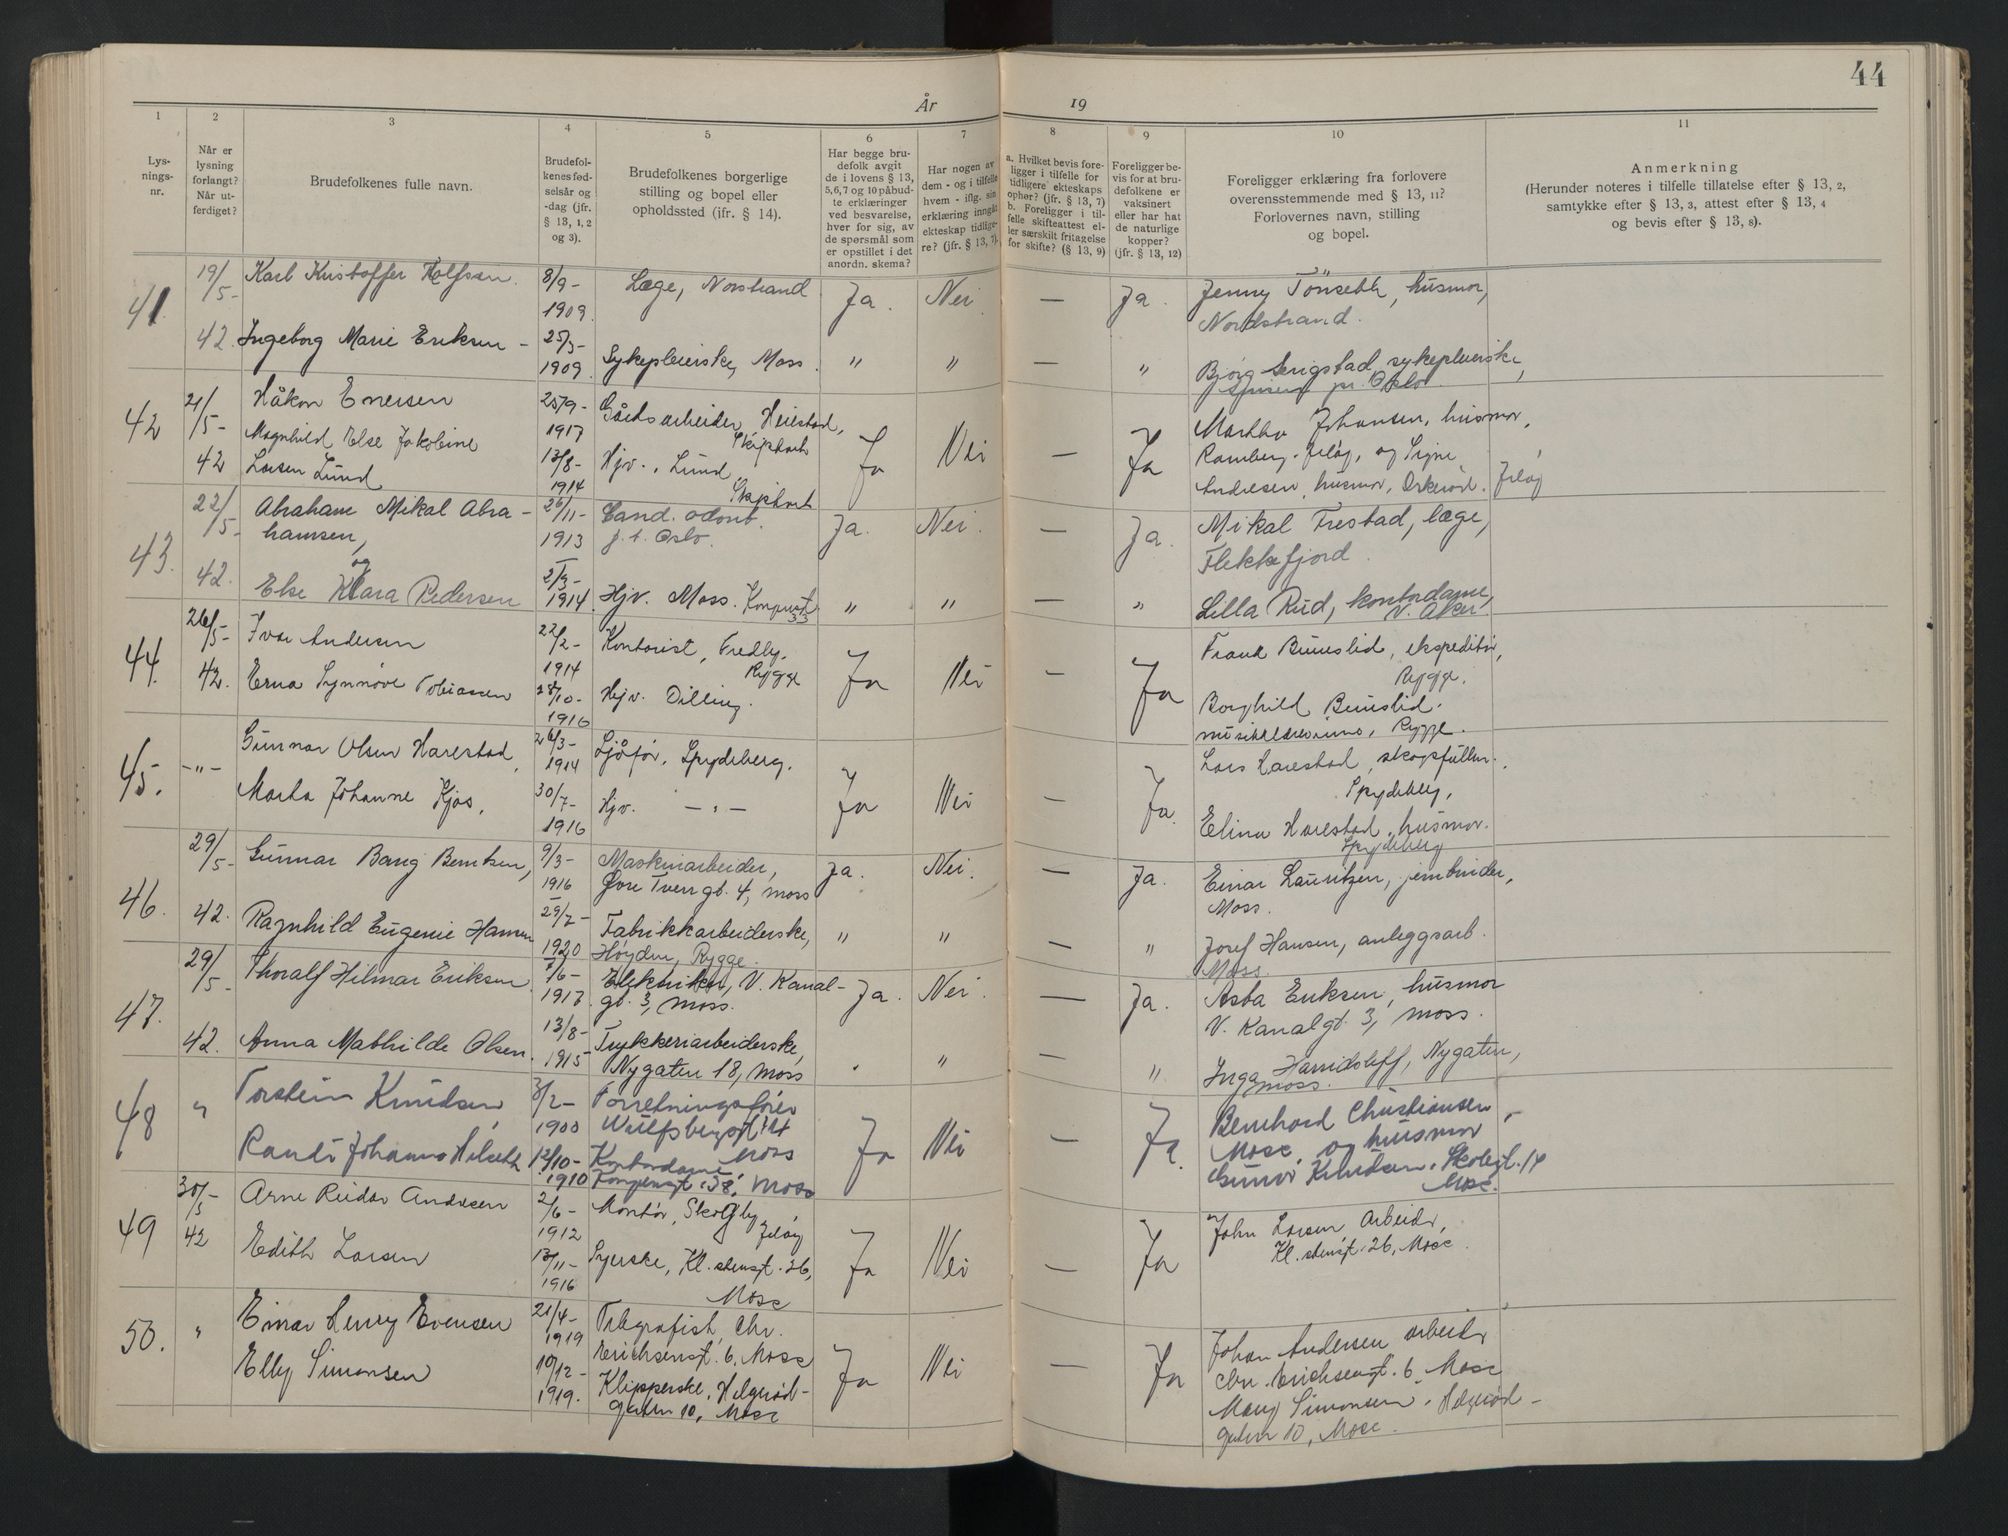 44
År 19
1 2 3 4 5 6 7 8 9 10 11
Lys-
nings-
nr.
Når er
lysning
forlangt?
Når ut-
ferdiget?
Brudefolkenes fulle navn.
Brudefol-
kenes fød-
selsår og
-dag (jfr.
§ 13, 1, 2
og 3).
Brudefolkenes borgerlige
stilling og bopel eller
opholdssted (ifr. § 14).
Har begge bru-
defolk avgit
de i lovens § 13,
5,6,7 og 10 påbud-
te erklæringer
ved besvarelse,
hver for sig, av
de spørsmål som
er opstillet i det
anordn. skema?
Har nogen av
dem - og i tilfelle
hvem - iflg. sin
erklæring inngått
ekteskap tidlige-
re? (jfr. § 13, 7).
a. Hvilket bevis fore-
ligger i tilfelle for
tidligere ekteskaps
ophør? (jfr. § 13, 7)
b. Foreligger i til-
felle skifteattest el-
ler særskilt fritagelse
for skifte? (§ 13, 9)
Foreligger be-
vis for at bru-
defolkene er
vaksinert
eller har hat
de naturlige
kopper?
(jfr. § 13, 12)
Foreligger erklæring fra forlovere
overensstemmende med § 13, 11?
Forlovernes navn, stilling
og bopel.
Anmerkning
(Herunder noteres i tilfelle tillatelse efter § 13, 2,
samtykke efter § 13, 3, attest efter § 13, 4
og bevis efter § 13, 8).
41. 19/5- 42.
Karl Kristoffer 8/9-1909. Læge, Norstrand Ja. Nei. — Ja. Jenny Tönseth, husmor,
Nordstrand.
Ingeborg Marie Eriksen - 25/3-1909. Sykepleierske, Moss. " " — " Bjørg sykepleierske,
pr. Oslo.
42 21/5- 42
Håkon Enersen 25/9-1917 Gårdsarbeider, Heiestad,
Skiptvet
Magnhild Else Jakobine
Larsen Lund 13/8-1914 Hjv., Lund,
Skiptvet
Ja Nei Ja
Martha Johansen, husmor,
Ramberg, Jeløy, og Signe
Andresen, husmor, Orkerød. Jeløy
43. 22/5- 42.
Abraham Mikal Abra-
hamsen, 26/11-1913 Cand. odont.
f. t. Oslo. Ja. Nei. — Ja. Mikal Frestad, læge,
Flekkefjord.
og
Else Klara Pedersen 2/3-1914. Hjv. Moss. Kongensgt 33 " " — " Lilla Rud, kontordame,
V. Aker.
44. 26/5- 42.
Ivar Andersen 22/2-1914 Kontorist, Fredly,
Rygge
Erna Synnöve Tobiassen 28/10-1916 Hjv. Dilling.
Ja Nei — Ja
Frank Buuslid, ekspeditör,
Rygge.
Borghild Buuslid.
musikklærerinne, Rygge.
45. -"-
Gunnar Olsen Harestad, 26/3-1914 Sjåför, Spydeberg.
Marta Johanne Kjos. 30/7-1916 Hjv. -"-
Ja Nei — Ja.
Lars Harestad, skogsfullm.,
Spydeberg,
Elina Harestad, husmor.
Spydeberg
46. 29/5- 42.
Gunnar Bang Berntsen, 9/3-1916 Maskinarbeider,
Øvre Tverrgt. 4, moss Ja. Nei. — Ja. Einar Lauritzen, jernbinder,
Moss.
Ragnhild Eugenie Hansen 29/7-1920 Fabrikkarbeiderske,
Høyden, Rygge. " " — " Josef Hansen, anleggsarb.
Moss.
47. 29/5- 42.
Thoralf Hilmar Eriksen. 7/6-1917. Elektriker, V. Kanal-
gt. 3, moss. Ja. Nei. — Ja. Asta Eriksen, husmor
V. Kanalgt. 3, moss.
Anna Mathilde Olsen. 13/8-1915 Trykkeriarbeiderske,
Nygaten 18, moss . " — " Inga Nygaten,
moss.
48 "
Torstein Knudsen, 3/2-1900 Forretningsfører
Wulfsbergsgt. 14
Moss
Randi Johanne Helseth 13/10-1910 Kontordame,
Kongensgt. 38, Moss
Ja Nei — Ja.
Bernhard Christiansen,
Moss, og husmor
Gunvor Knudsen, Skolegt. 14
Moss.
49 30/5 42
Arne Reidar Andresen 2/6-1912 Montör, Skogly,
Jeløy
Edith Larsen 13/11-1916 Syerske, Kl. stensgt. 26,
Moss
Ja Nei — Ja
John Larsen, Arbeider,
Kl. stensgt. 26, Moss.
50. "
Einar Henry Evensen 21/4-1919 Telegrafist, Chr.
Erichsensgt. 6, Moss
Elly Simonsen 10/12-1919. Klipperske, Helgerød-
gaten 10, Moss
Ja Nei — Ja
Johan Andersen arbeider
Chr. Erichsensgt. 6, Moss
Mary Simonsen, Helgerød-
gaten 10, Moss.